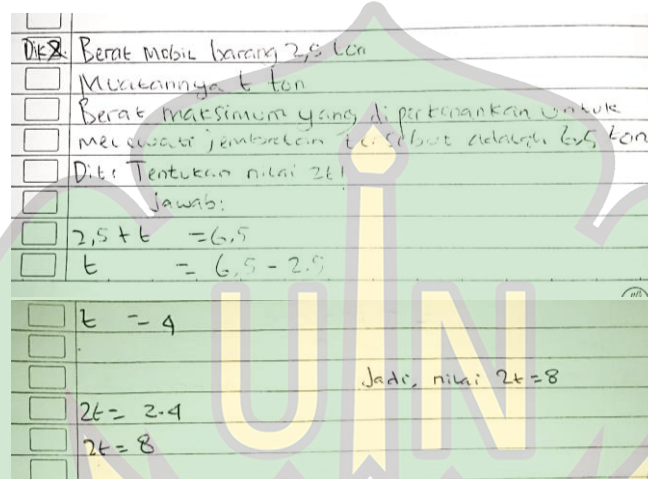 Dik: Berat Mobil barang 2,5 ton
Muatannya t ton
Berat maksimum yang diperkenankan untuk
melewati jembatan tersebut adalah 6,5 ton
Dit: Tentukan nilai 2t!
Jawab:
2,5 + t = 6,5
t = 6,5 - 2.5
t = 4
Jadi, nilai 2t = 8
2t = 2.4
2t = 8
UIN